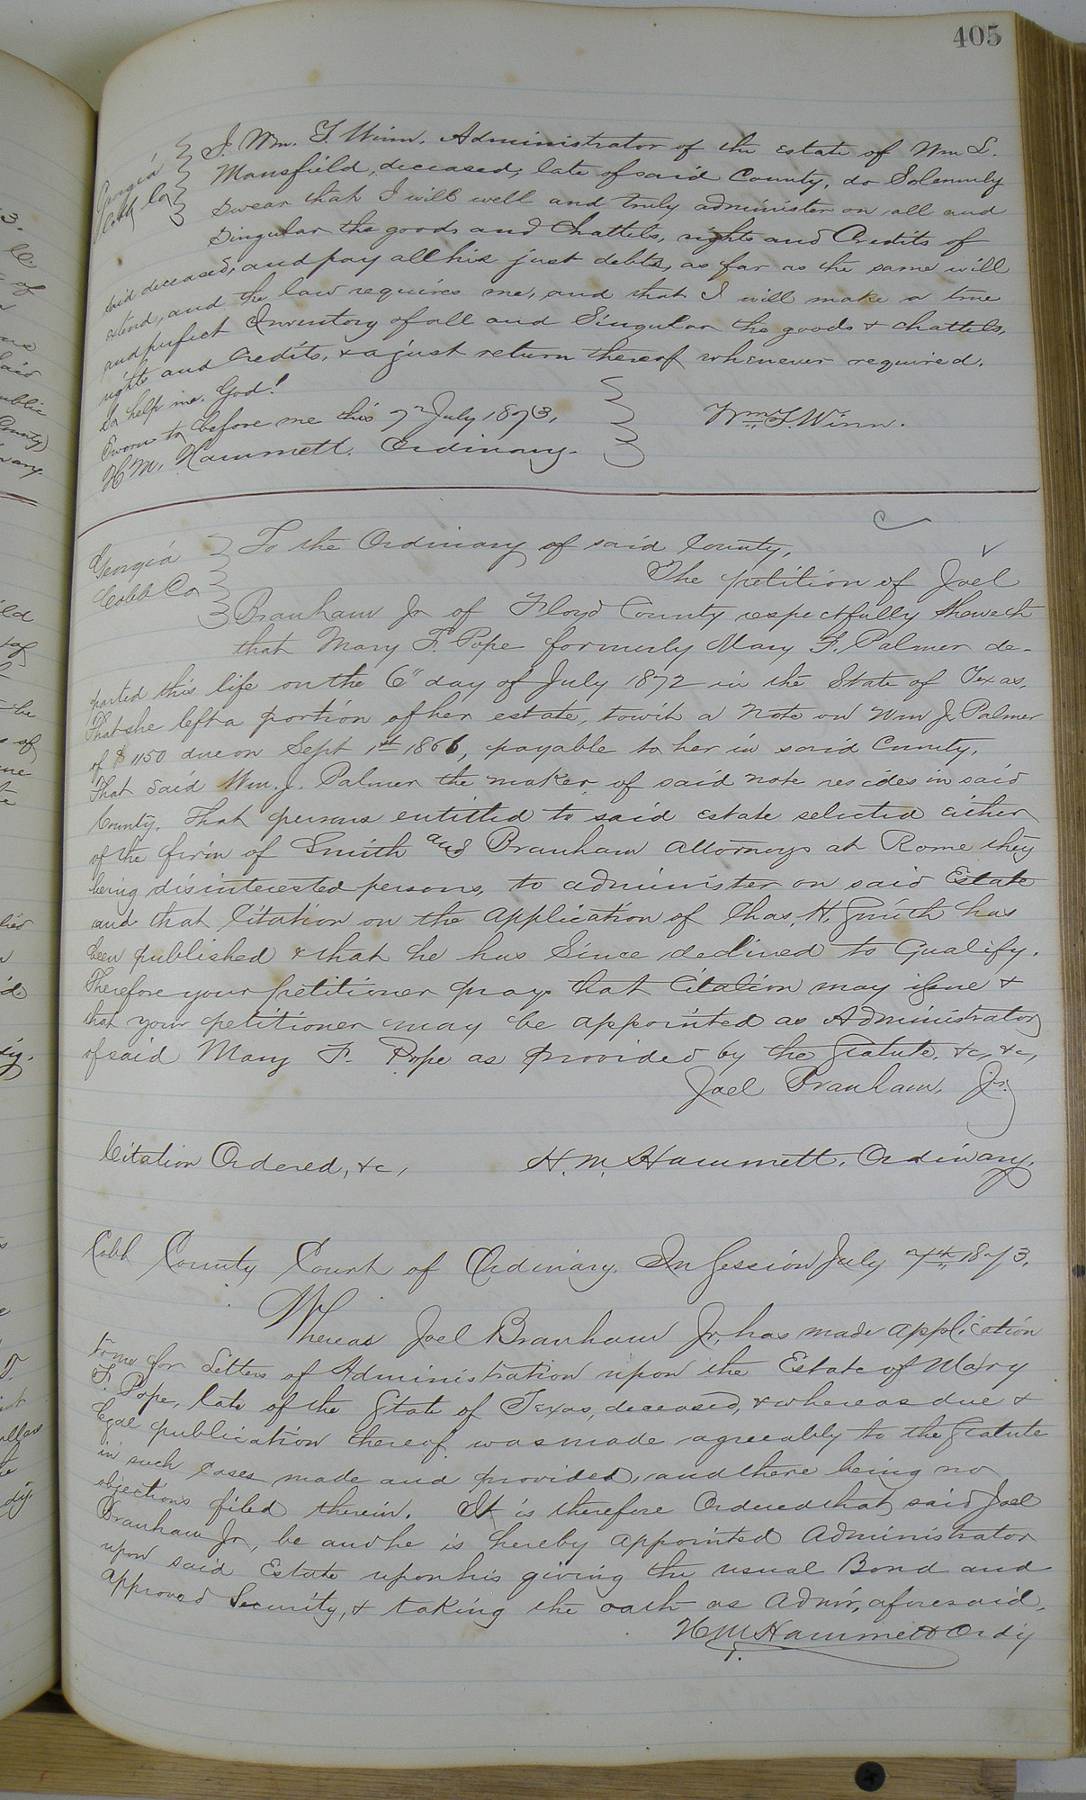 405
Georgia
Cobb Co
I, Wm. T. Winn, Administrator of the estate of Wm L.
Mansfield, deceased, late of said County, do Solemnly
swear that I will well and truly administer on all and
Singular the goods and Chattels, rights and Credits of
said deceased, and pay all his just debts, as far as the same will
extend, and the law requires me, and that I will make a true
and perfect Inventory of all and Singular the goods & chattels,
rights and Credits, & a just return thereof whenever required.
So help me God!
Sworn to before me this 7th July 1873,
H. M. Hammett, Ordinary.
Wm. T. Winn.
Georgia
Cobb Co
To the Ordinary of said County,
The petition of Joel
Branham Jr of Floyd County respectfully sheweth
that Mary F. Pope formerly Mary F. Palmer de-
parted this life on the 6" day of July 1872 in the State of Texas,
That she left a portion of her estate, towit a Note on Wm J. Palmer
of $1150 due on Sept 1st 1866, payable to her in said County.
That said Wm. J. Palmer the maker of said note resides in said
County. That persons entitled to said estate selected either
of the firm of Smith and Branham Attorneys at Rome they
being disinterested persons, to administer on said Estate
and that Citation on the application of Chas. H. Smith has
been published & that he has Since declined to Qualify.
Therefore your petitioner prays that Citation may issue &
that your petitioner may be appointed as Administrator
of said Mary F. Pope as provided by the Statute, &c, &c,
Joel Branham, Jr.
Citation Ordered, &c, H. M. Hammett, Ordinary.
Cobb County Court of Ordinary. In Session July 7th 1873.
Whereas Joel Branham Jr, has made application
to me for Letters of Administration upon the Estate of Mary
F. Pope, late of the State of Texas, deceased, & whereas due &
legal publication thereof was made agreeably to the Statute
in such Cases made and provided, and there being no
objections filed therein. It is therefore Ordered that said Joel
Branham Jr, be and he is hereby appointed Administrator
upon said Estate upon his giving the usual Bond and
approved Security, & taking the oath as Admr, aforesaid,
H M Hammett Ordy